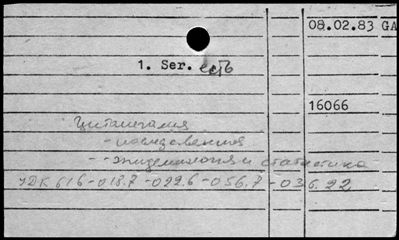 08.02.83 GA
1. Ser. есть
16066
- эпидемиология и статистика
УДК 616-018.7-022.6-056.7-036.22